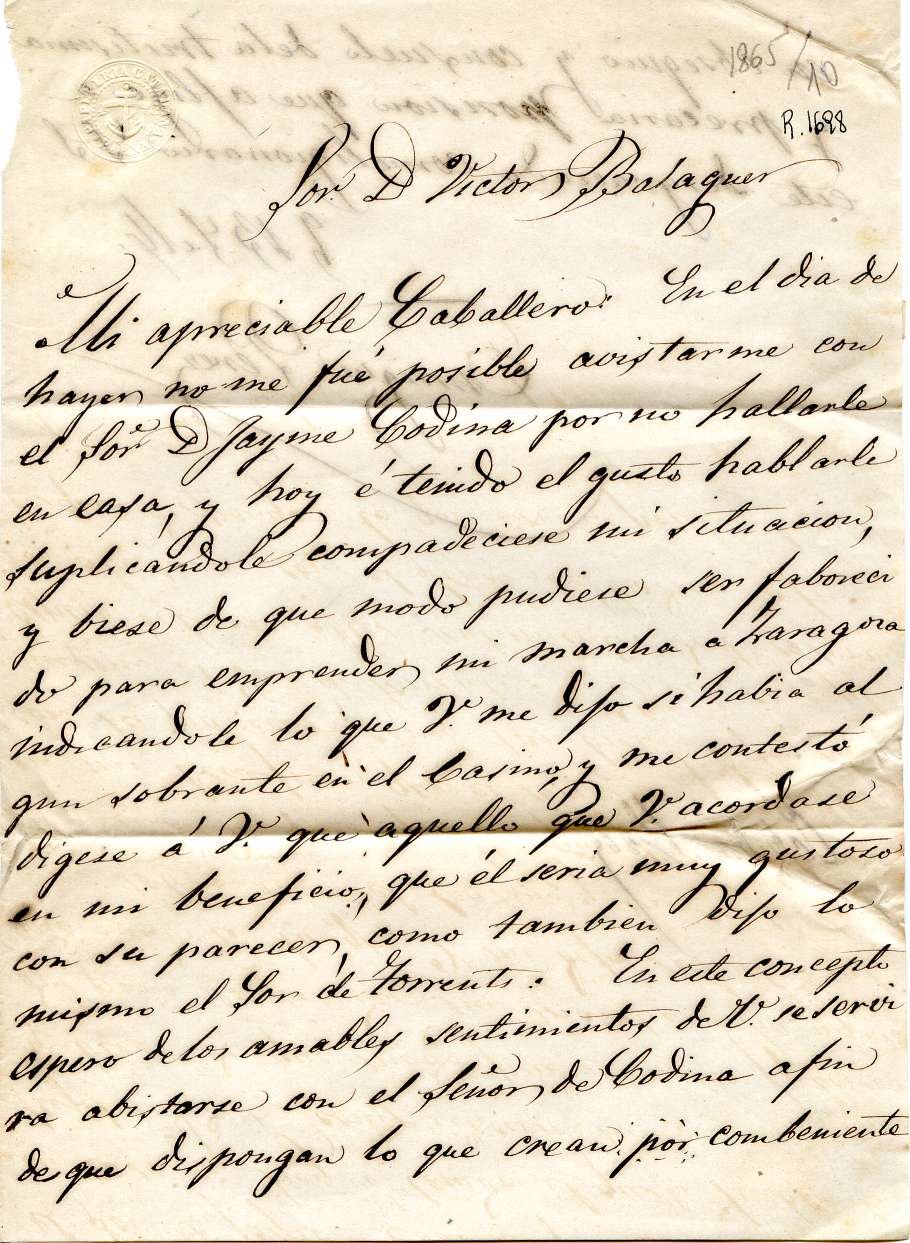 1865/10
R.1698
Sor. D Victor Balaguer
Mi apreciable Caballero: En el dia de
hayer no me fué posible avistarme con
el Sor. D Jayme Codina por no hallarle
en casa, y hoy é tenido el gusto hablarle
suplicándole compadeciese mi situacion,
y biese de que modo pudiese ser faboreci
do para emprender mi marcha a Zaragoza
indicandole lo que V. me dijo si habia al
gun sobrante en el Casino, y me contestó
digese á V. que aquello que V. acordase
en mi beneficio, que él seria muy gustoso
con su parecer, como tambien dijo lo
mismo el Sor de Torrents. En este concepto
espero de los amables sentimientos de V. se servi
ra abistarse con el Señor de Codina afin
de que dispongan lo que crean por combeniente